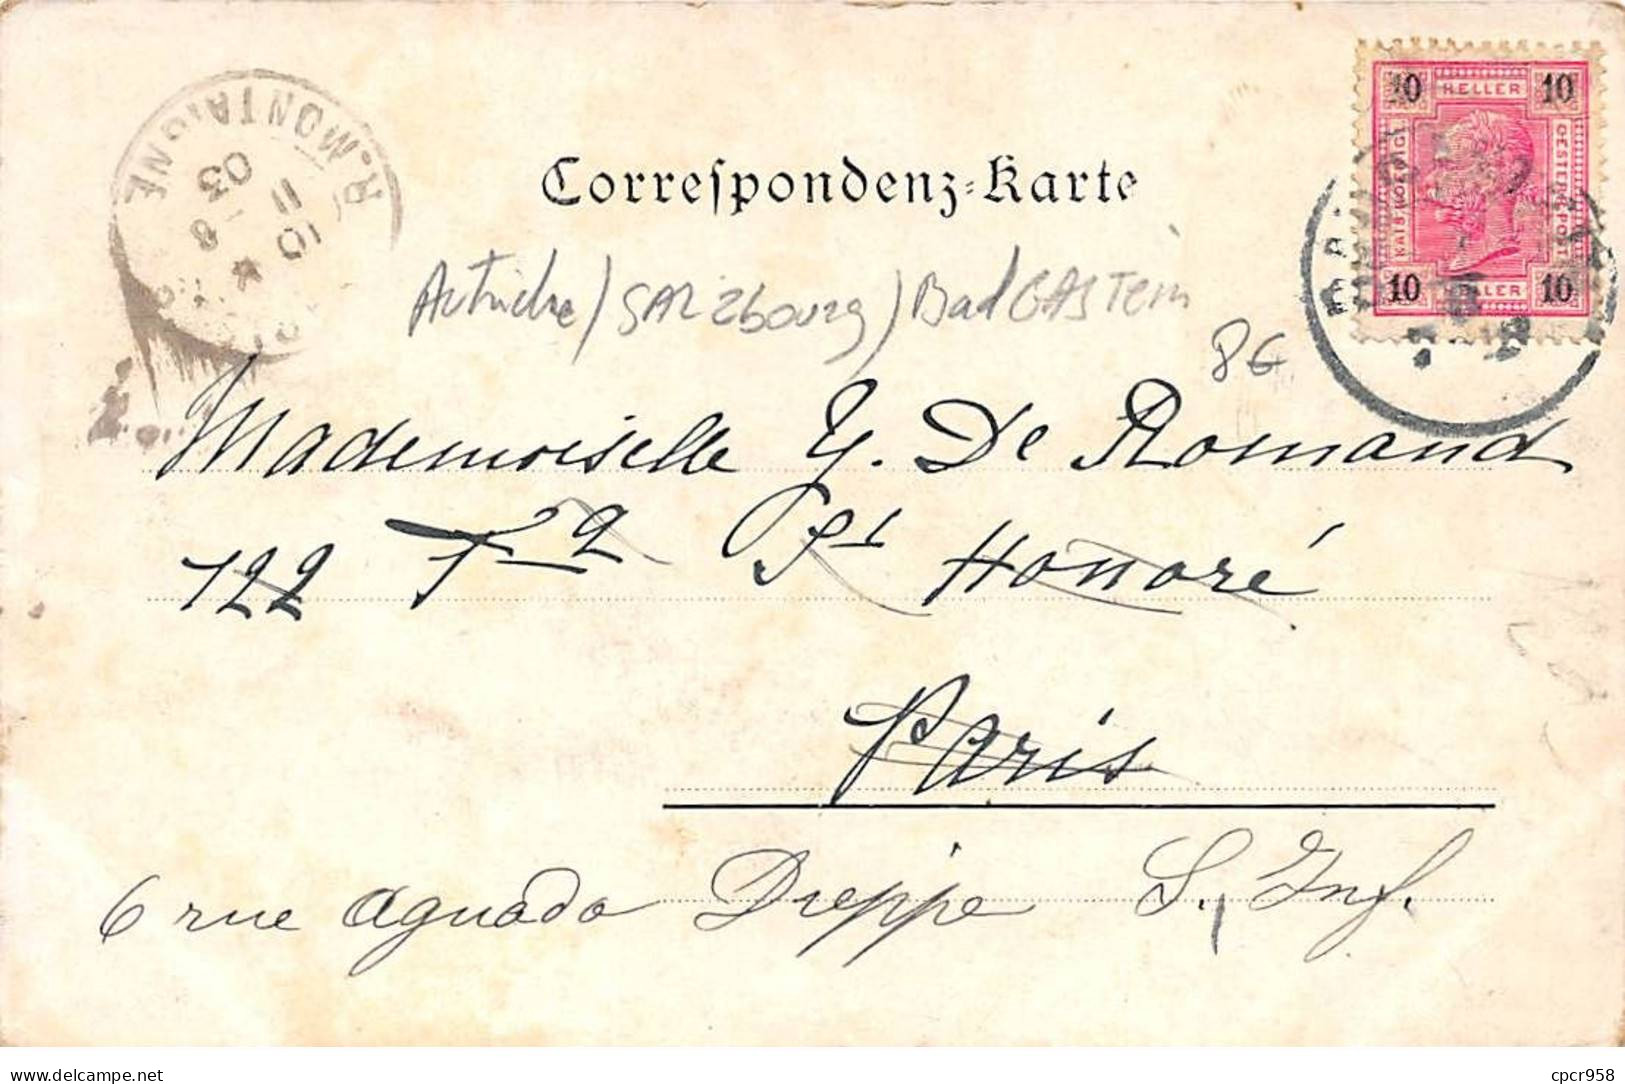 Correspondenz-Karte
10 HELLER 10
KAIS KOENIGL OESTERR POST
10 HELLER 10
R. MONTAIGNE
10
11
8
03
Autriche / SALZbourg / Bad GASTein
8€
Mademoiselle Y. De Romand
122 Honoré
Paris
6 rue Aguado Dieppe S. Inf.
delcampe.net
cpcr958